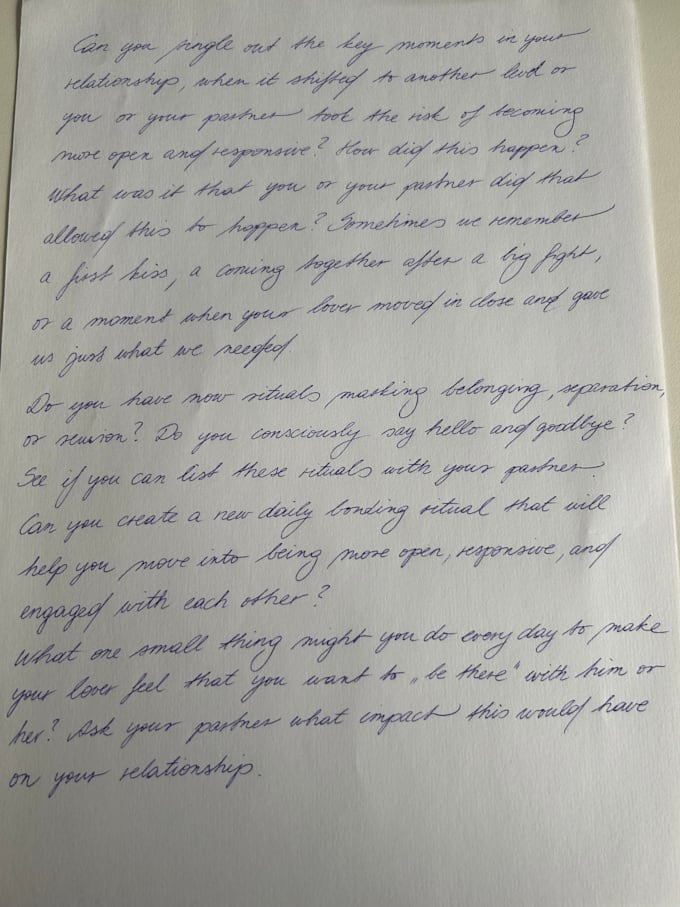 Can you single out the key moments in your
relationship, when it shifted to another level or
you or your partner took the risk of becoming
more open and responsive? How did this happen?
What was it that you or your partner did that
allowed this to happen? Sometimes we remember
a first kiss, a coming together after a big fight,
or a moment when your lover moved in close and gave
us just what we needed.
Do you have now rituals marking belonging, separation,
or reunion? Do you consciously say hello and goodbye?
See if you can list these rituals with your partner.
Can you create a new daily bonding ritual that will
help you move into being more open, responsive, and
engaged with each other?
What one small thing might you do every day to make
your lover feel that you want to „be there" with him or
her? Ask your partner what impact this would have
on your relationship.